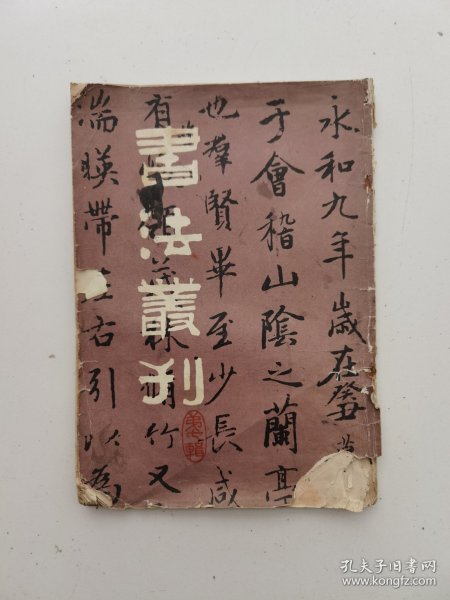 永和九年歲在癸丑
于會稽山陰之蘭亭
也羣賢畢至少長咸
有領茂林脩竹又
湍暎帶左右引以為
書法叢刊
孔夫子旧书网
www.kongfz.com